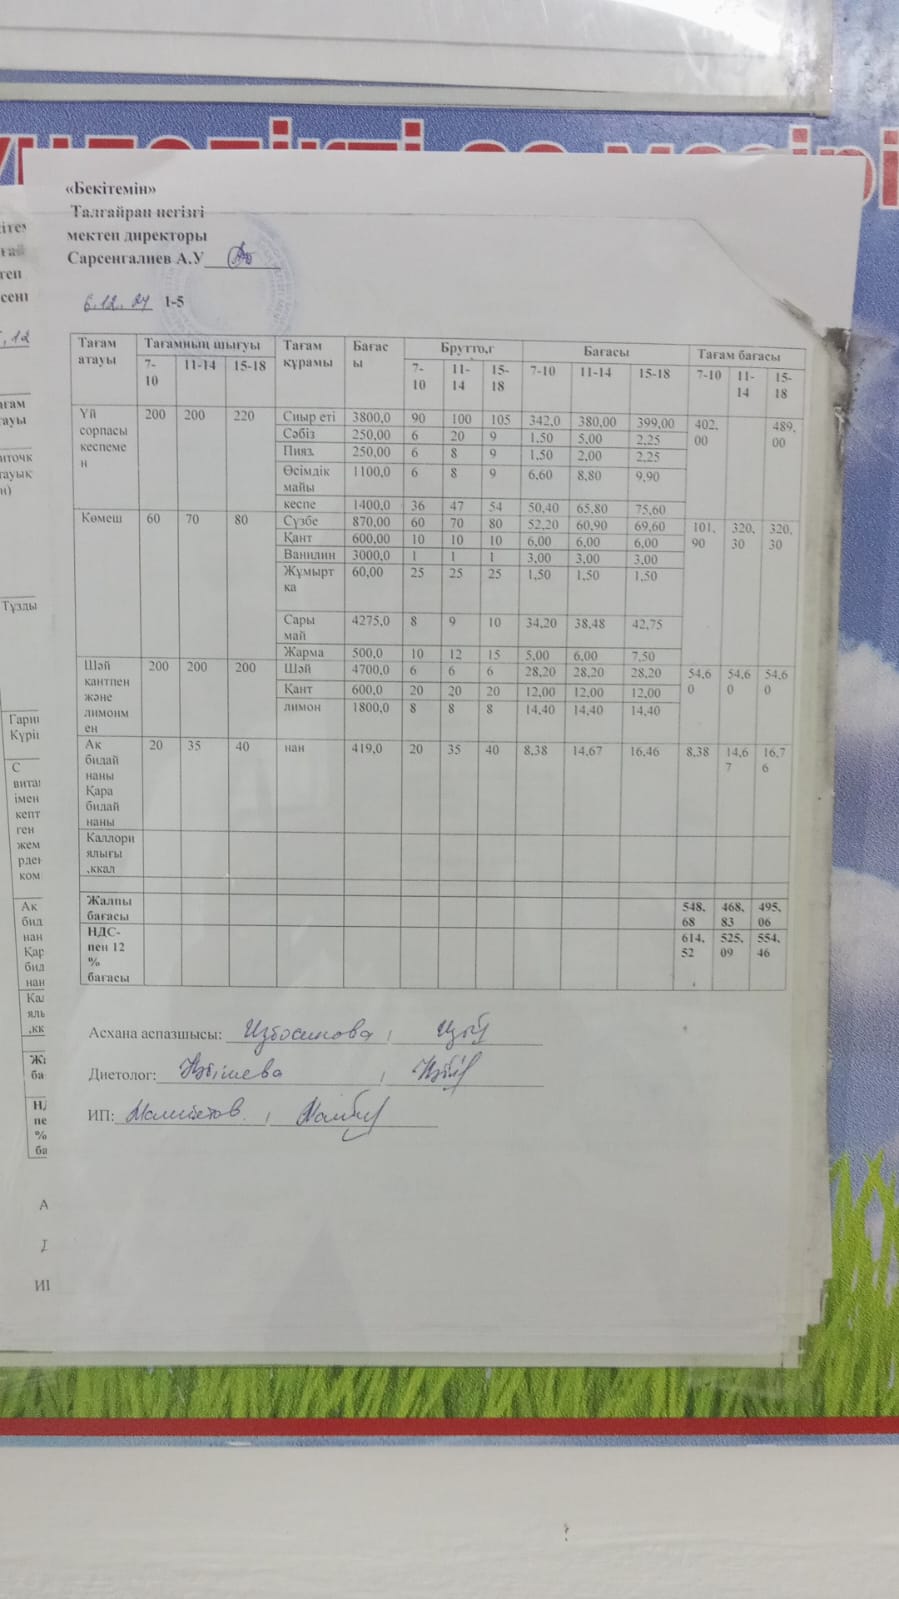 «Бекітемін»
Талғайран негізгі
мектеп директоры
Сарсенгалиев А.У
6.12.24 1-5
Тағам атауы Тағамның шығуы Тағам құрамы Бағасы Брутто,г Бағасы Тағам бағасы
7-10 11-14 15-18 7-10 11-14 15-18 7-10 11-14 15-18 7-10 11-14 15-18
Үй сорпасы кеспемен 200 200 220 Сиыр еті 3800,0 90 100 105 342,0 380,00 399,00 402,00 489,00
Сәбіз 250,00 6 20 9 1,50 5,00 2,25
Пияз 250,00 6 8 9 1,50 2,00 2,25
Өсімдік майы 1100,0 6 8 9 6,60 8,80 9,90
кеспе 1400,0 36 47 54 50,40 65,80 75,60
Көмеш 60 70 80 Сүзбе 870,00 60 70 80 52,20 60,90 69,60 101,90 320,30 320,30
Қант 600,00 10 10 10 6,00 6,00 6,00
Ванилин 3000,0 1 1 1 3,00 3,00 3,00
Жұмыртка 60,00 25 25 25 1,50 1,50 1,50
Сары май 4275,0 8 9 10 34,20 38,48 42,75
Жарма 500,0 10 12 15 5,00 6,00 7,50
Шәй кантпен және лимонмен 200 200 200 Шәй 4700,0 6 6 6 28,20 28,20 28,20 54,60 54,60 54,60
Қант 600,0 20 20 20 12,00 12,00 12,00
лимон 1800,0 8 8 8 14,40 14,40 14,40
Ак бидай наны Қара бидай наны 20 35 40 нан 419,0 20 35 40 8,38 14,67 16,46 8,38 14,67 16,76
Каллориялығы ,ккал
Жалпы бағасы 548,68 468,83 495,06
НДС-пен 12 % бағасы 614,52 525,09 554,46
Асхана аспазшысы:
Диетолог:
ИП:
Тұзды